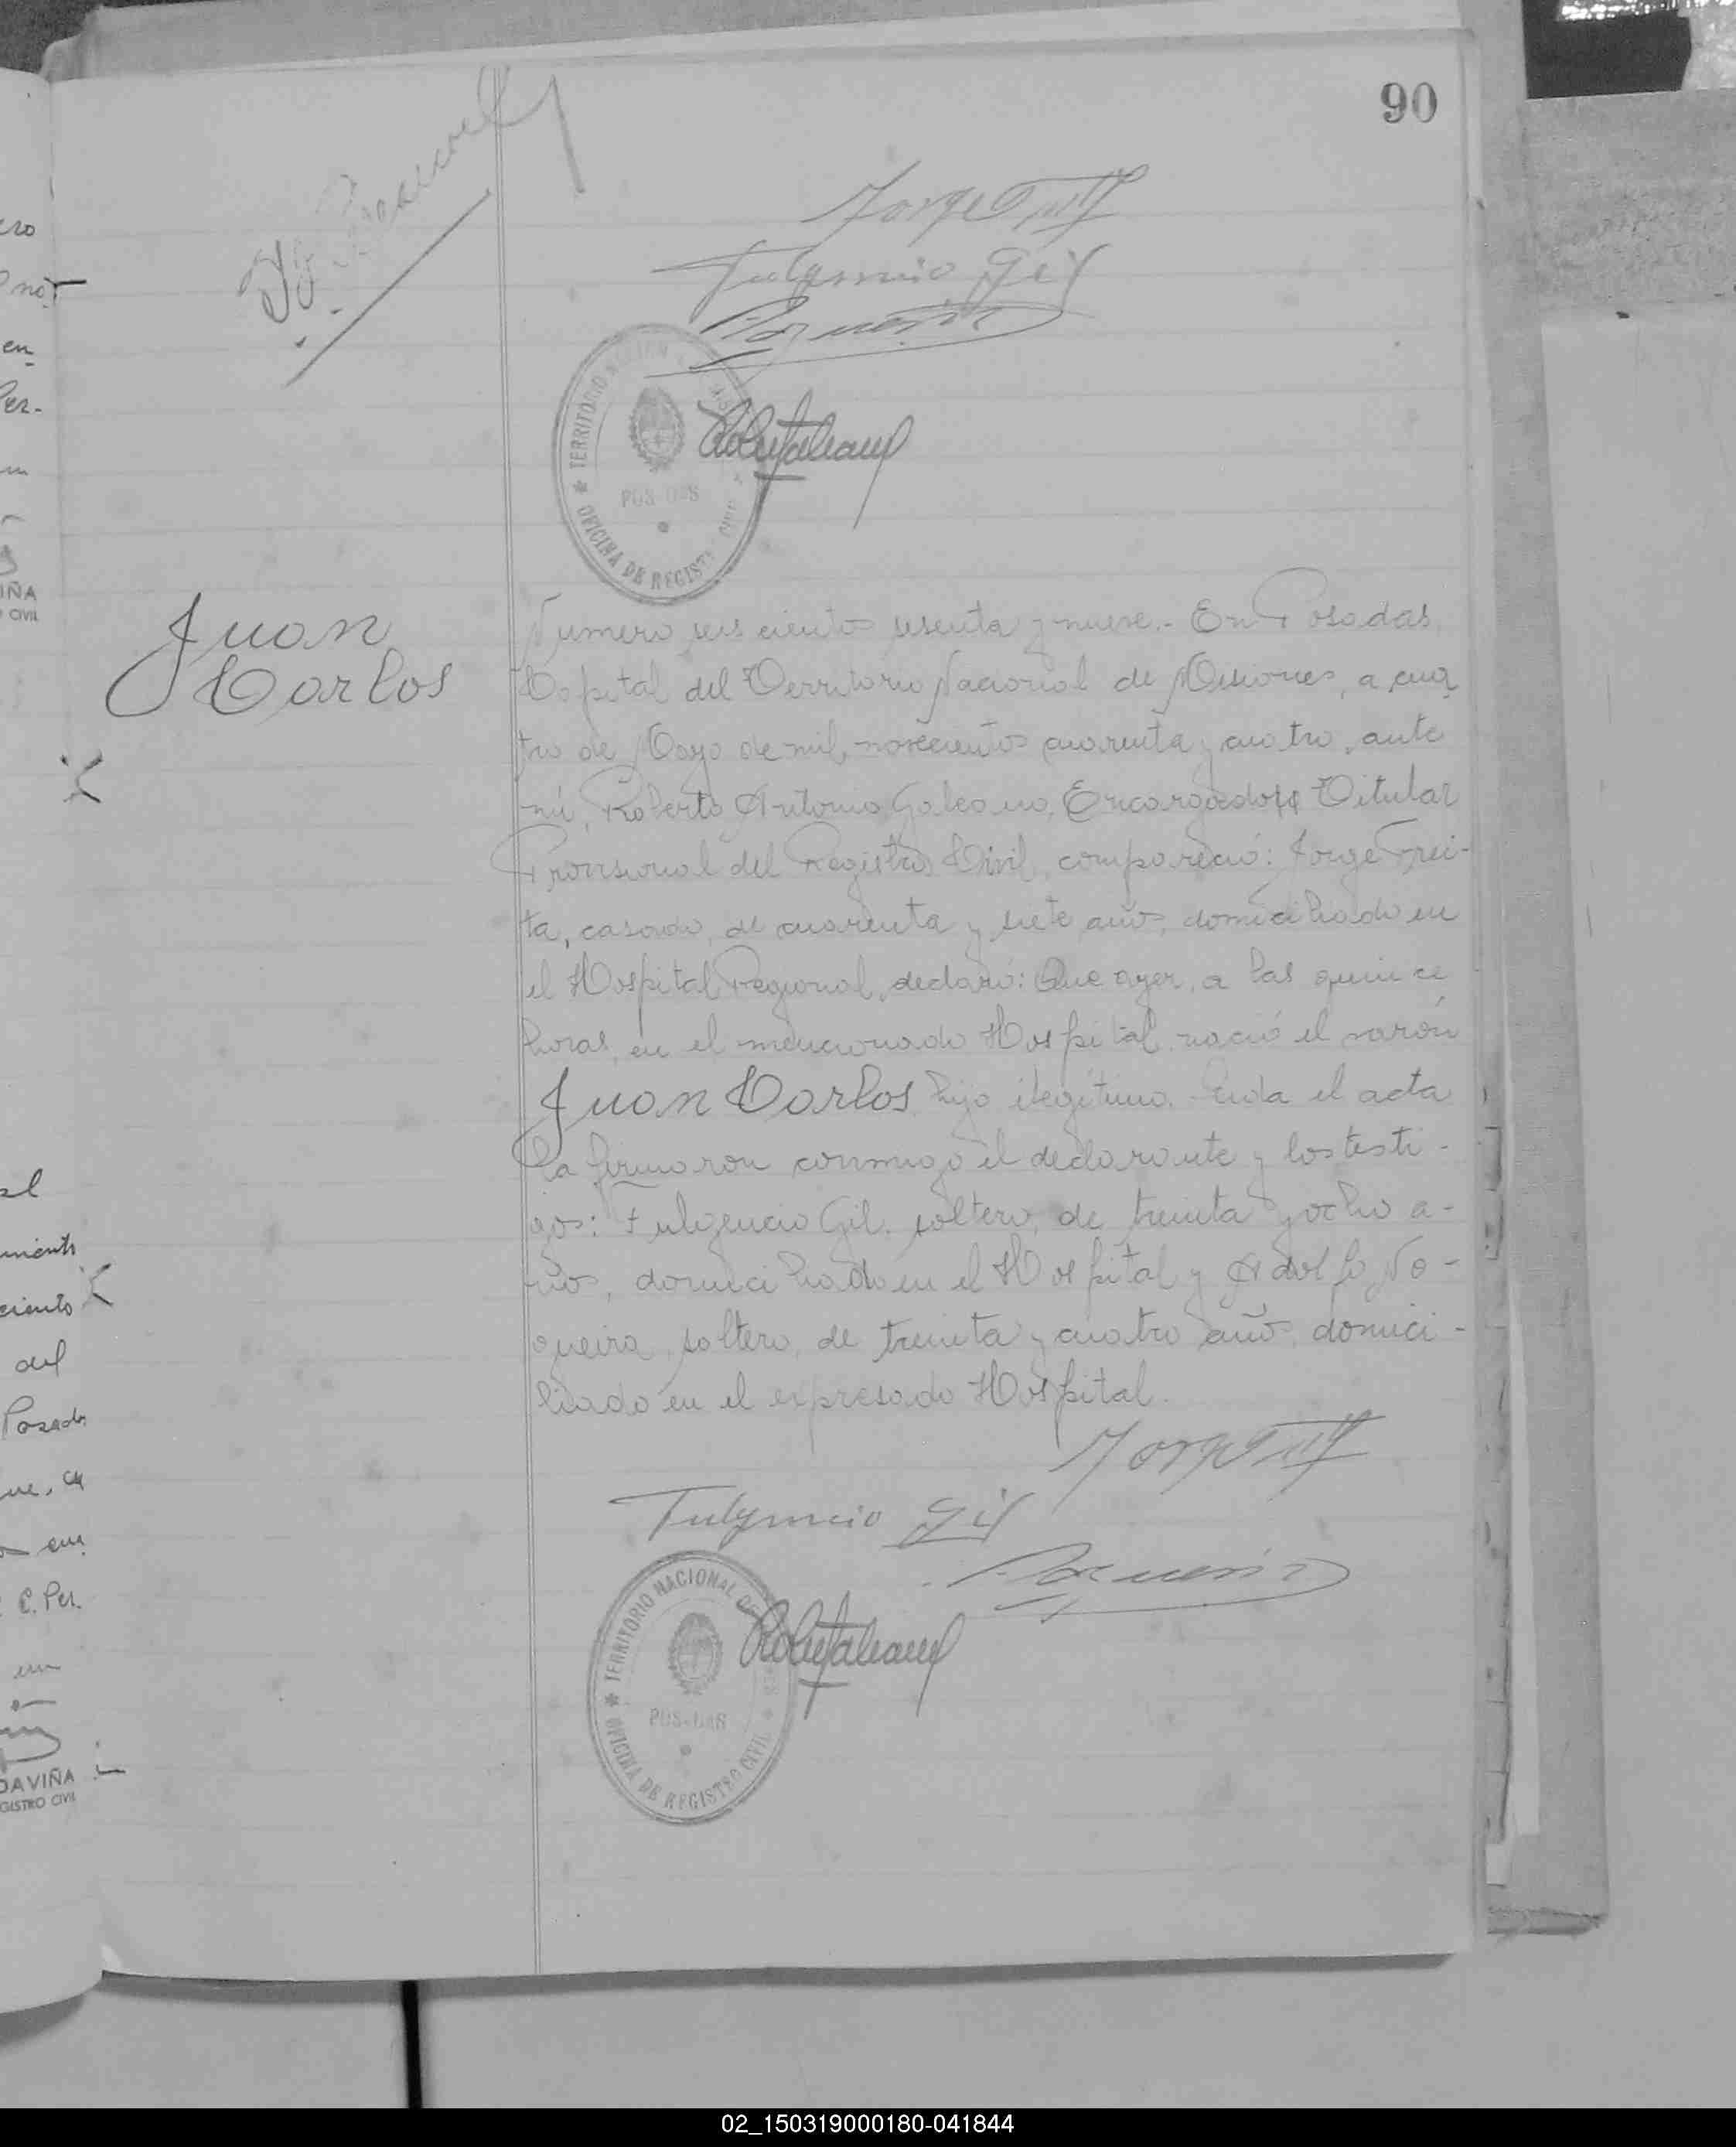 90
Fulgencio Gil
TERRITORIO
POSADAS
OFICINA DE REGISTRO CIVIL
Juan
Carlos
Numero seis cientos sesenta y nueve.- En Posadas,
Capital del Territorio Nacional de Misiones, a cua
tro de Mayo de mil novecientos cuarenta y cuatro, ante
mí, Roberto Antonio Galeano, Encargado Titular
Provisional del Registro Civil, compareció: Jorge Frei-
ta, casado, de cuarenta y siete años, domiciliado en
el Hospital Regional, declaró: Que ayer, a las quince
horas, en el mencionado Hospital, nació el varón
Juan Carlos, hijo ilegítimo. Leida el acta
la firmaron conmigo el declarante y los testi-
gos: Fulgencio Gil, soltero, de treinta y ocho a-
ños, domiciliado en el Hospital y Adolfo No-
gueira, soltero, de treinta y cuatro años, domici-
liado en el expresado Hospital.
Fulgencio Gil
TERRITORIO NACIONAL DE
POSADAS
OFICINA DE REGISTRO CIVIL
ero
en
Per-
IÑA
CIVIL
miento
ciento
del
Posadas
C. Per.
DAVIÑA
GISTRO CIVIL
02_150319000180-041844